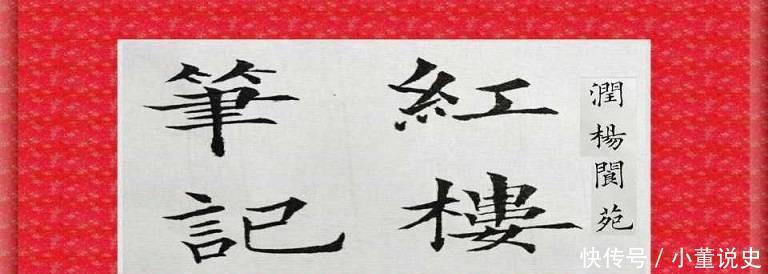 潤楊閬苑
紅樓
筆記
快传号 / 小董说史